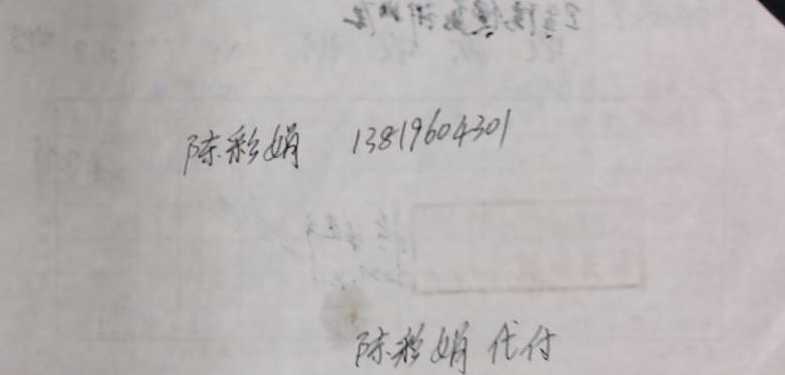 陈彩娟 13819604301
陈彩娟 代付